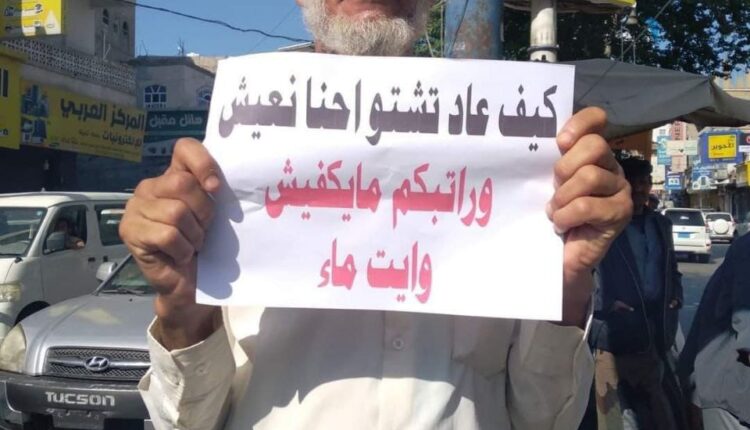 كيف عاد تشتوا احنا نعيش
وراتبكم مايكفيش
وايت ماء
المركز العربي
هائل مقبل
HYUNDAI
TUCSON